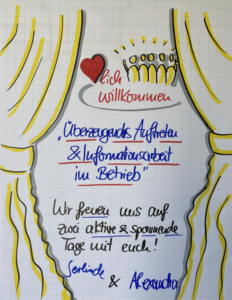 lich
willkommen
„Überzeugendes Auftreten
& Informationsarbeit
im Betrieb"
Wir freuen uns auf
zwei aktive & spannende
Tage mit euch!
Gerlinde & Alexandra